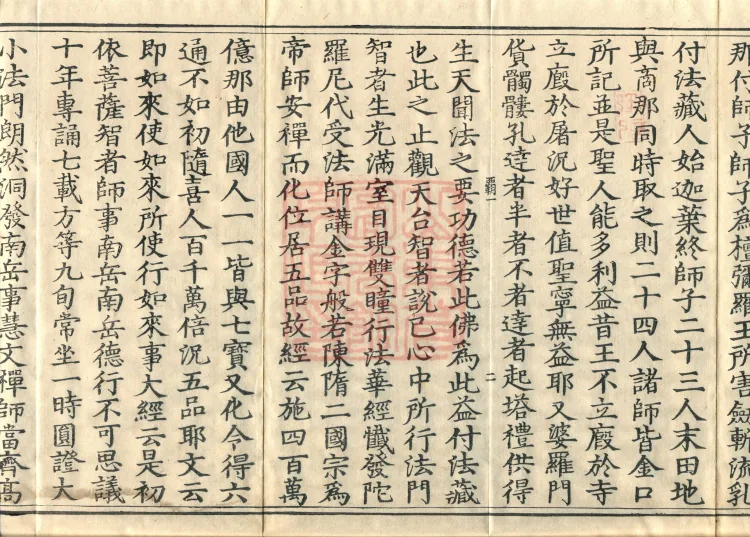 那付師子師子為檀彌羅王所害劒斬流乳
付法藏人始迦葉終師子二十三人末田地
與商那同時取之則二十四人諸師皆金口
所記並是聖人能多利益昔王不立廄於寺
立廄於屠況好世值聖寧無益耶又婆羅門
貨髑髏孔達者半者不者達者起塔禮供得
生天聞法之要功德若此佛為此益付法藏
也此之止觀天台智者說己心中所行法門
智者生光滿室目現雙瞳行法華經懺發陀
羅尼代受法師講金字般若陳隋二國宗為
帝師安禪而化位居五品故經云施四百萬
億那由他國人一一皆與七寶又化令得六
通不如初隨喜人百千萬倍況五品耶文云
即如來使如來所使行如來事大經云是初
依菩薩智者師事南岳南岳德行不可思議
十年專誦七載方等九旬常坐一時圓證大
小法門朗然洞發南岳事慧文禪師當齊高